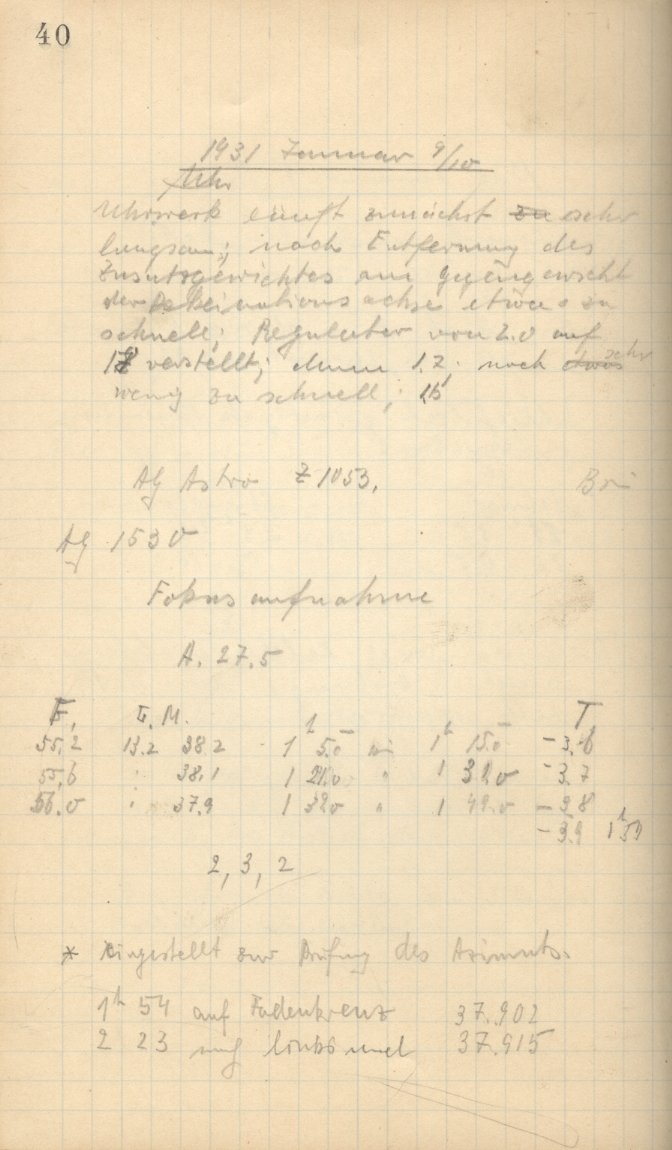 40
1931 Januar 9/10
Uhr
Uhrwerk läuft zunächst zu sehr
langsam; nach Entfernung des
Zusatzgewichtes am Gegengewicht
der Deklinationsachse etwas zu
schnell; Regulator von 2.0 auf
verstellt; dann 1.2; noch etwas sehr
wenig zu schnell; 1,15
Ag Astro Z 1053,
Ag 1530
Fokusaufnahme
A. 27.5
F, T. M. h T,
55,2 13.2 38.2 1 5.0 bis 1h 15.0 -3.6
55,6 " 38,1 1 21.0 " 1 31.0 -3.7
56.0 " 37.9 1 " 1 49.0 -3.8
-3.9 1h 51
2, 3, 2
* eingestellt zur Prüfung des Azimuts.
1h 54 auf Fadenkreuz 37.902
2 23 links und 37.915